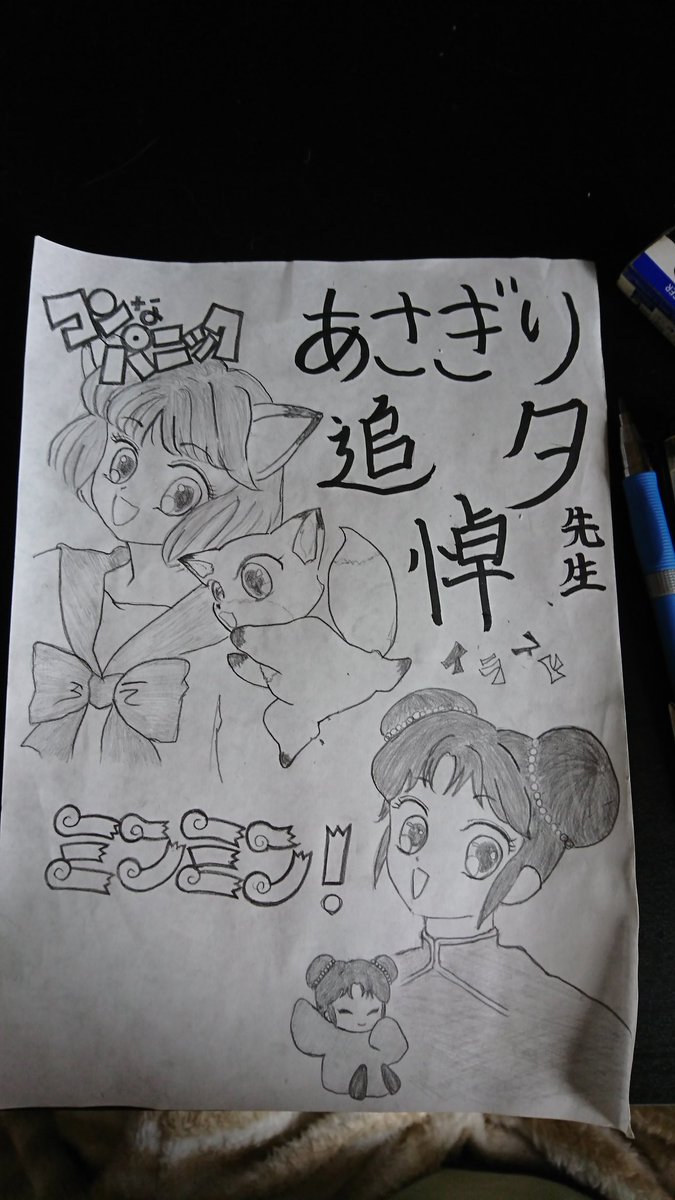 コンな
パニック
あさぎり
夕
先生
追悼
イラスト
ミンミン!